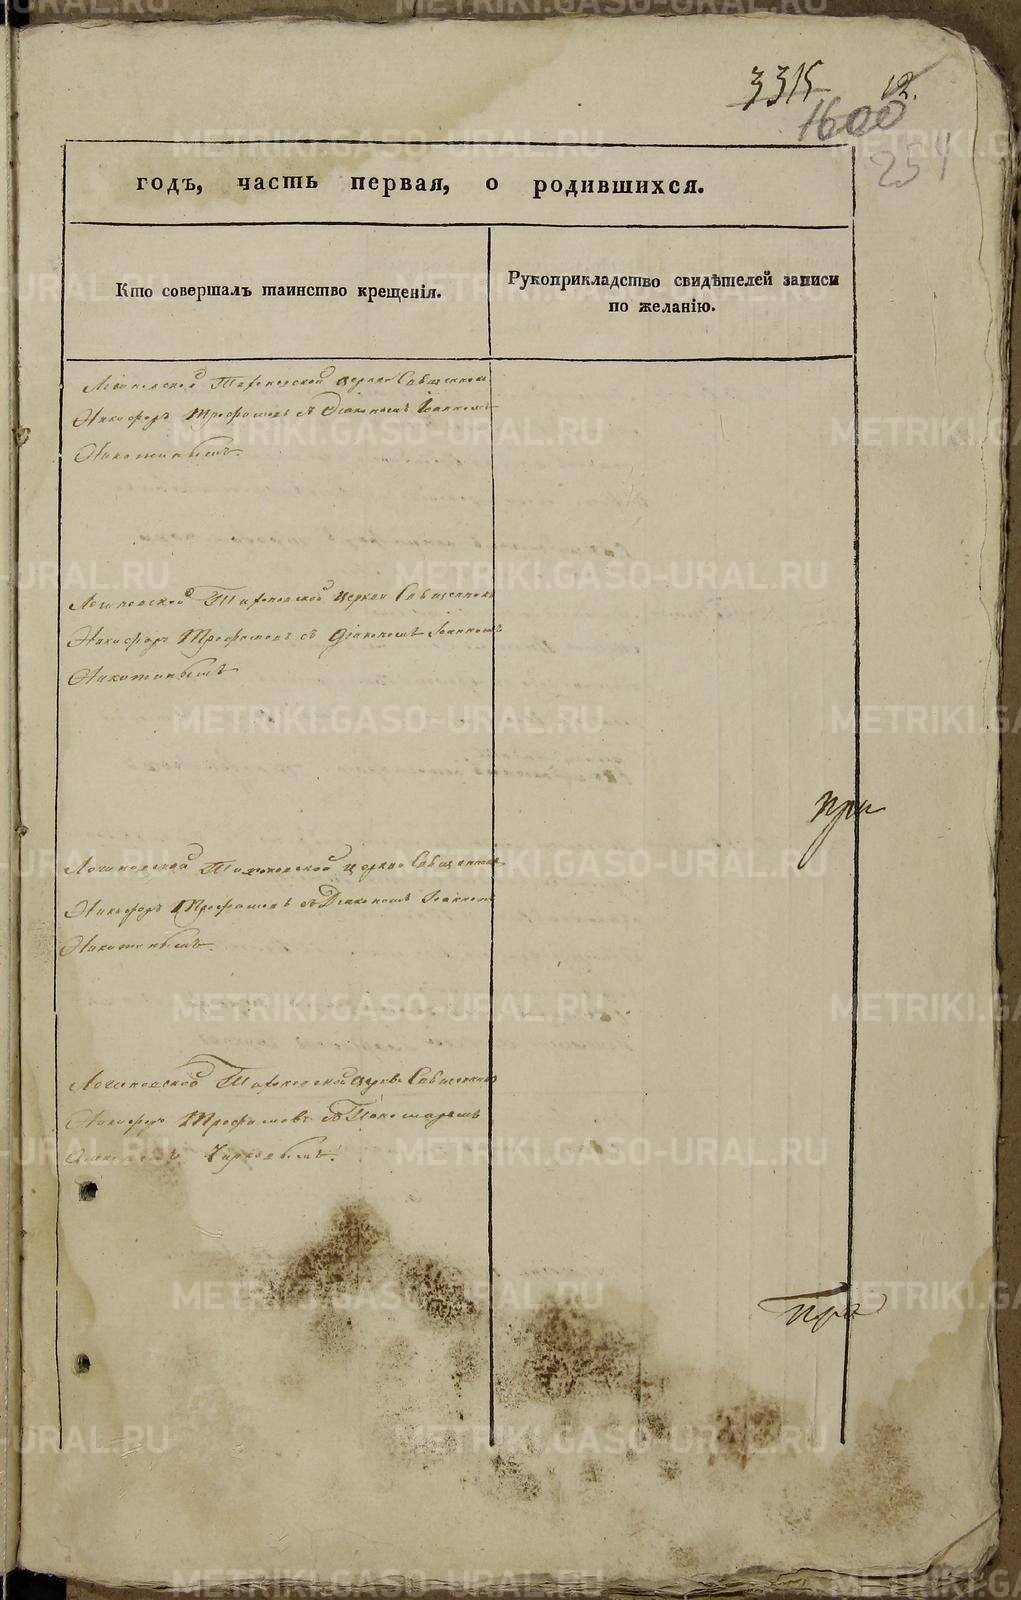 3315
12.
1600
251
годъ, часть первая, о родившихся.
Кто совершалъ таинство крещенія.
Рукоприкладство свидѣтелей записи
по желанію.
Логиновской Тихоновской церкви Священникъ
Никифоръ Трофимовъ съ Діакономъ Іоанномъ
Никитинымъ.
Логиновской Тихоновской церкви Священникъ
Никифоръ Трофимовъ съ Діакономъ Іоанномъ
Никитинымъ
при
Логиновской Тихоновской церкви Священникъ
Никифоръ Трофимовъ съ Діакономъ Іоанномъ
Никитинымъ.
Логиновской Тихоновской церкви Священникъ
Никифоръ Трофимовъ съ Пономаремъ
METRIKI.GASO-URAL.RU